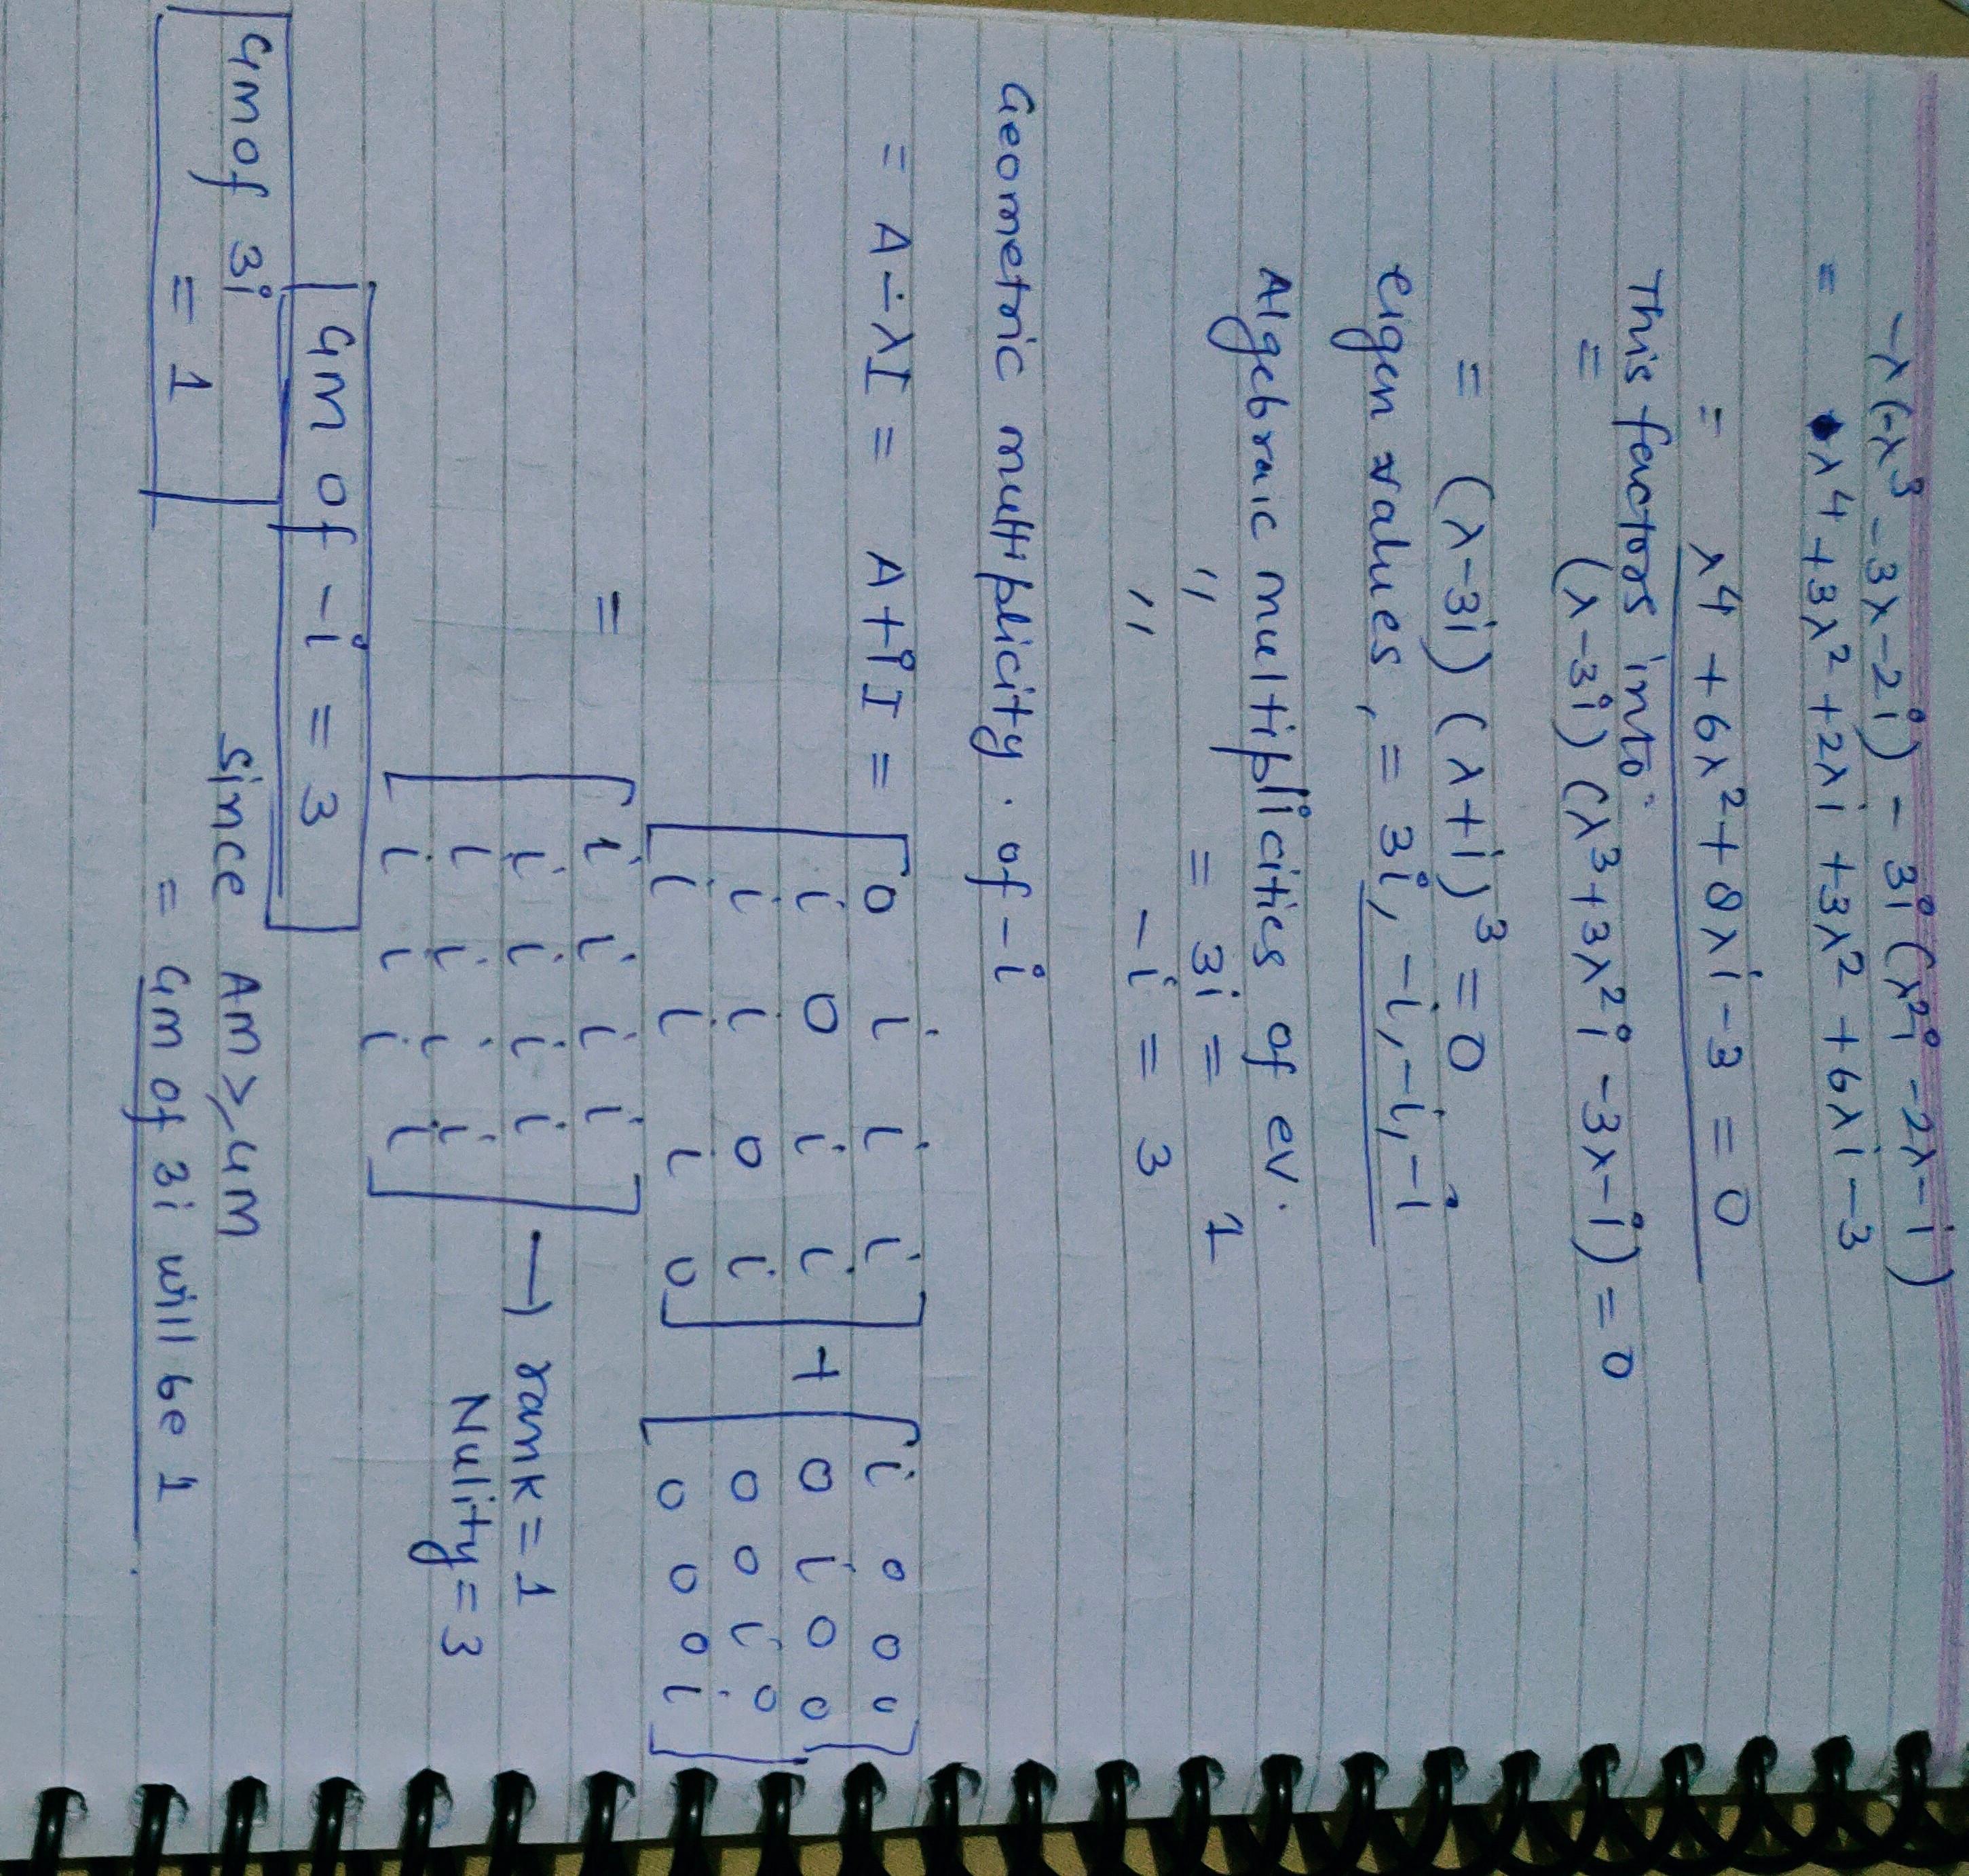 -λ(-λ³ - 3λ - 2i) - 3i(λ²i - 2λ - i)
= λ⁴ + 3λ² + 2λi + 3λ² + 6λi - 3
= λ⁴ + 6λ² + 8λi - 3 = 0
This factors into
= (λ - 3i) (λ³ + 3λ²i - 3λ - i) = 0
= (λ - 3i) (λ + i)³ = 0
eigen values, = 3i, -i, -i, -i
Algebraic multiplicities of ev.
" = 3i = 1
" -i = 3
Geometric multiplicity. of -i
= A - λI = A + iI = [0 i i i; i 0 i i; i i 0 i; i i i 0] + [i 0 0 0; 0 i 0 0; 0 0 i 0; 0 0 0 i]
= [i i i i; i i i i; i i i i; i i i i] → rank = 1
Nulity = 3
Gm of -i = 3
Since Am ≥ Gm
= Gm of 3i will be 1
Gm of 3i
= 1